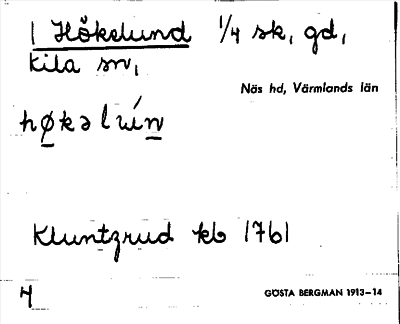 1 Hökelund 1/4 sk, gd,
Kila sn,
Näs hd, Värmlands län
høkəlun
Kluntzrud kb 1761
4
GÖSTA BERGMAN 1913–14